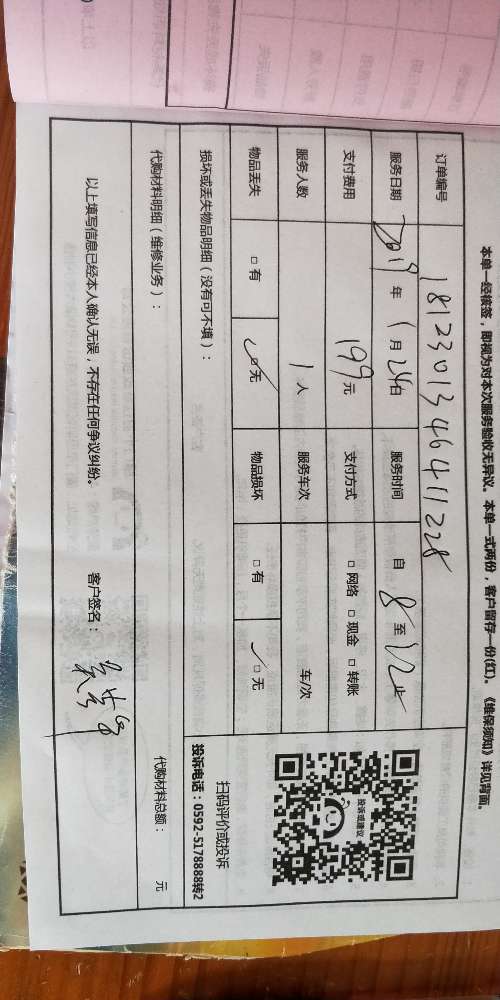 本单一经接签，即视为对本次服务验收无异议。本单一式两份，客户留存一份(红)。《维保须知》详见背面。
订单编号 1812301346411228
服务日期 2019 年 1 月 24 日 服务时间 自 8 至 12 止
支付费用 199 元 支付方式 □ 网络 □ 现金 □ 转账
服务人数 1 人 服务车次 车/次
物品丢失 □ 有 ✓□ 无 物品损坏 □ 有 ✓□ 无
损坏或丢失物品明细（没有可不填）：
投诉或建议
扫码评价或投诉
投诉电话：0592-5178888转2
代购材料明细（维修业务）：
代购材料总额： 元
以上填写信息已经本人确认无误，不存在任何争议纠纷。 客户签名：